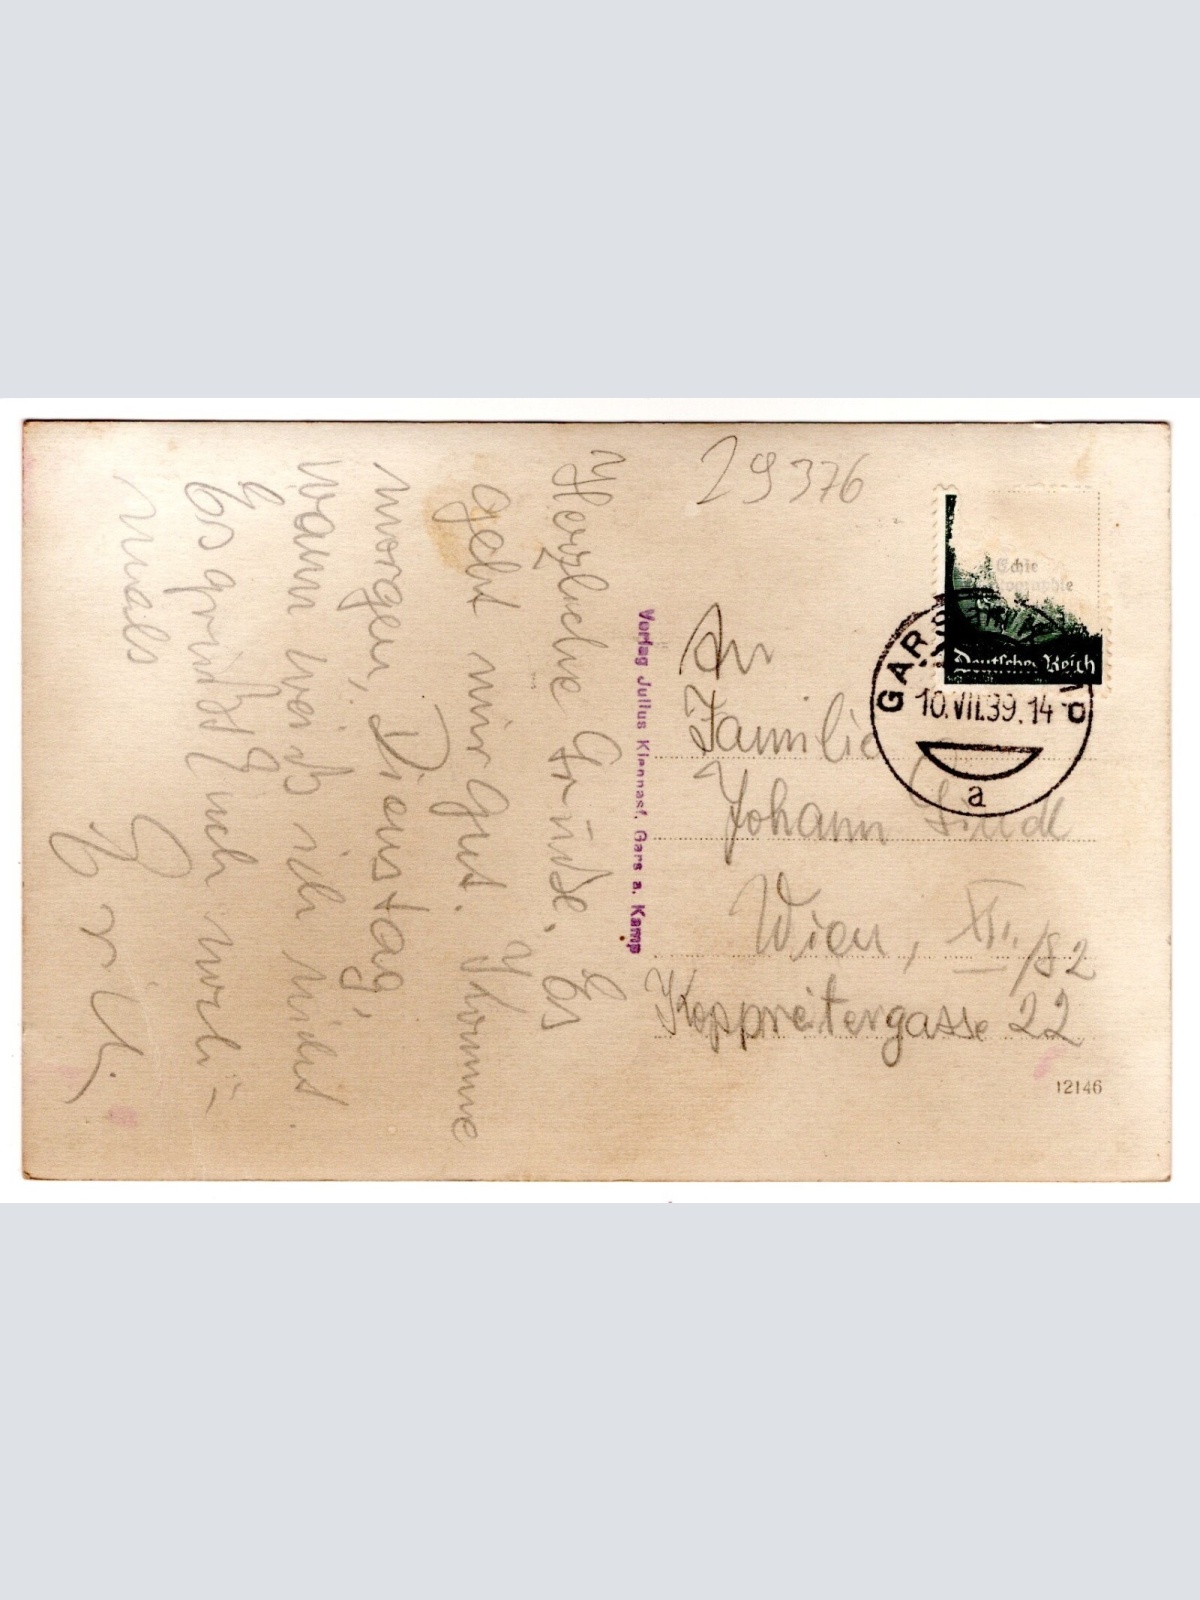 Herzliche Grüße. Es
geht mir gut. Komme
morgen, Dienstag,
wann weiß ich nicht
Es grüßt Euch noch-
mals
Erich.
Verlag Julius Kiennast, Gars a. Kamp
29376
Echte
Deutsches Reich
GARS
10.VII.39.14
a
An
Familie
Johann
Wien, XII./82
Koppreitergasse 22
12146